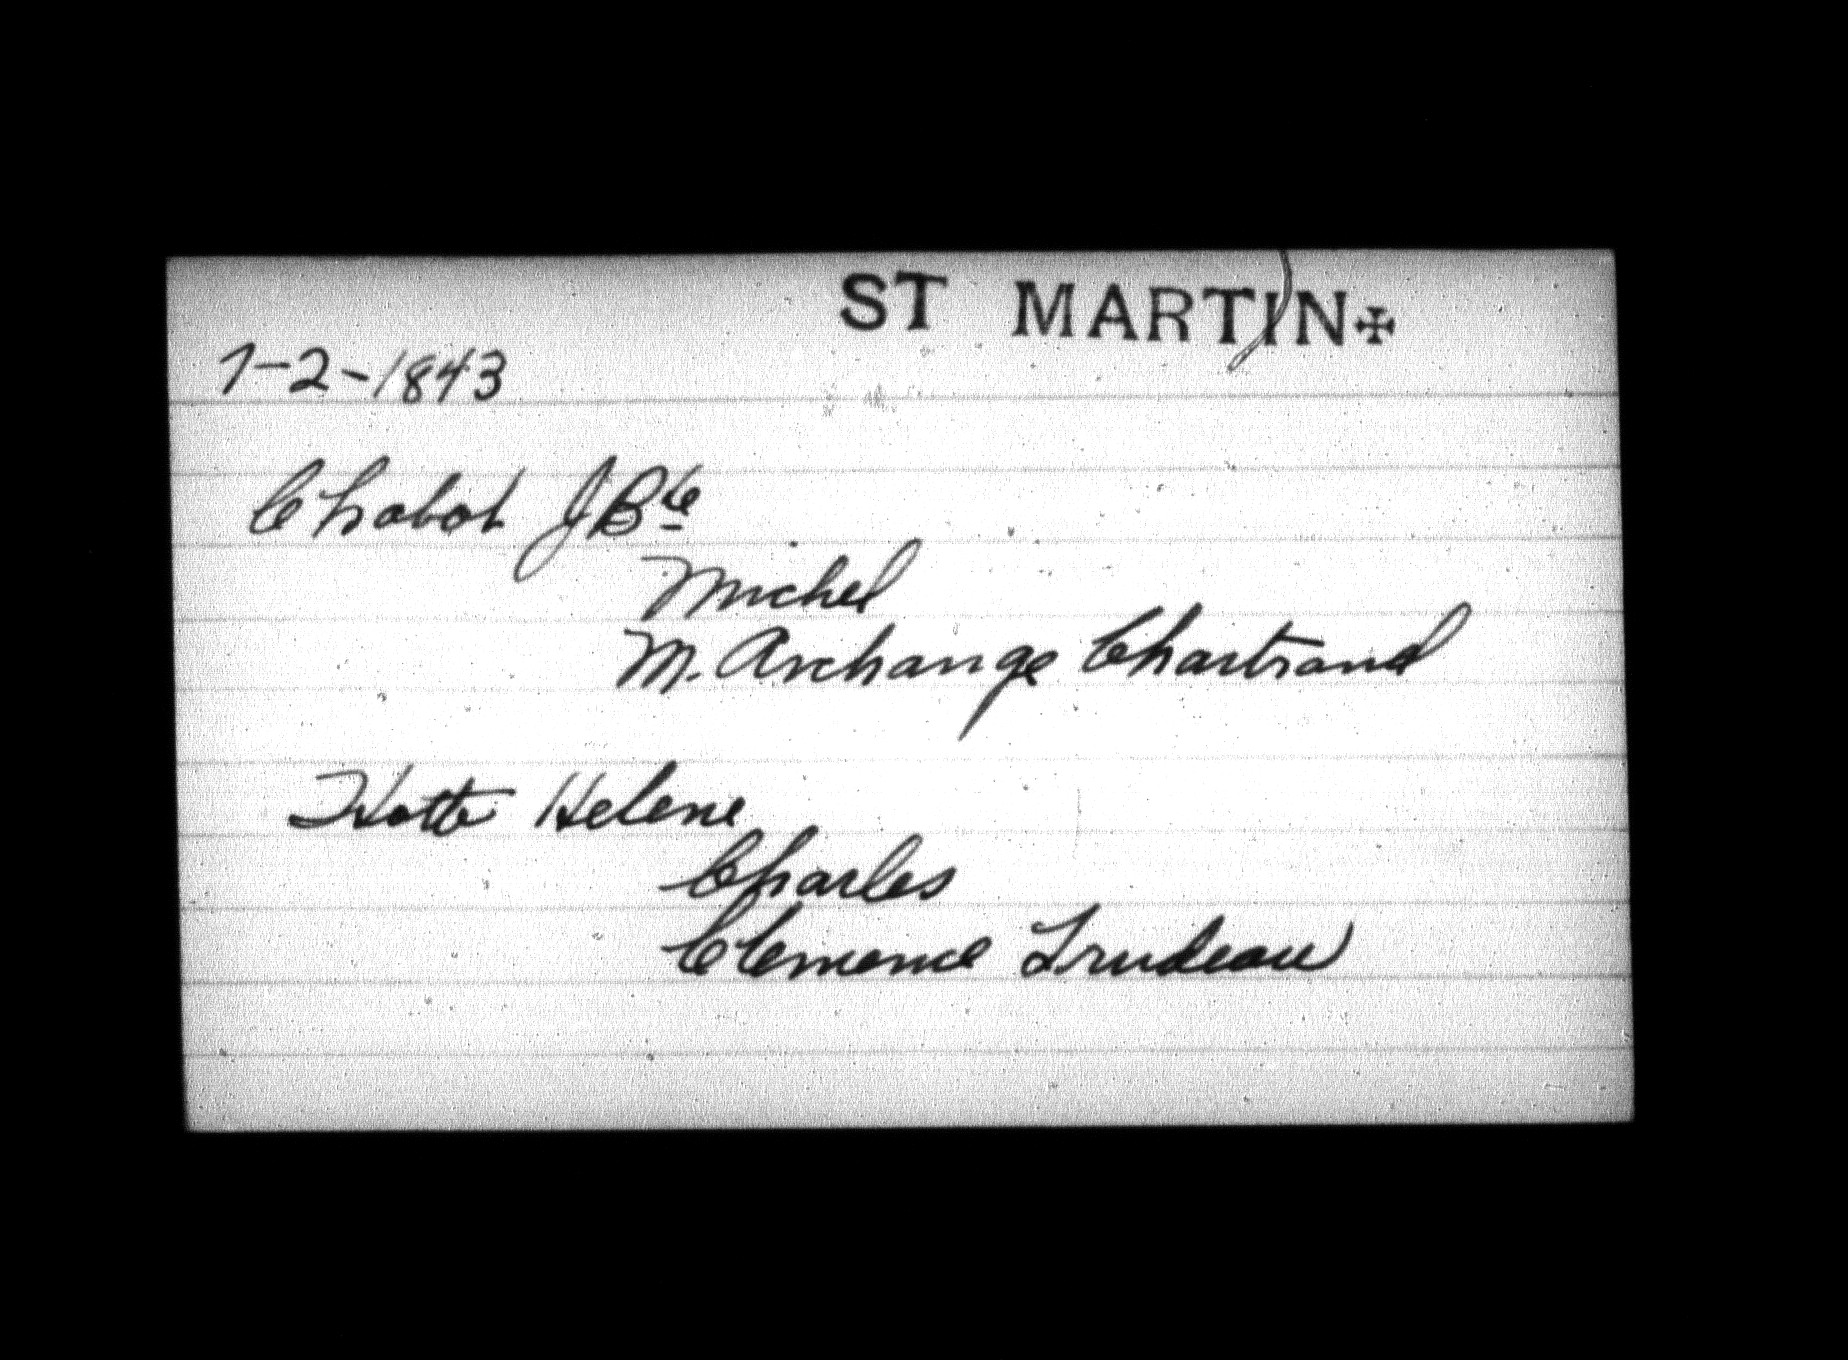 ST MARTIN✠
7-2-1843
Chabot J Bte
Michel
M. Archange Chartrand
Hotte Helene
Charles
Clemence Trudeau